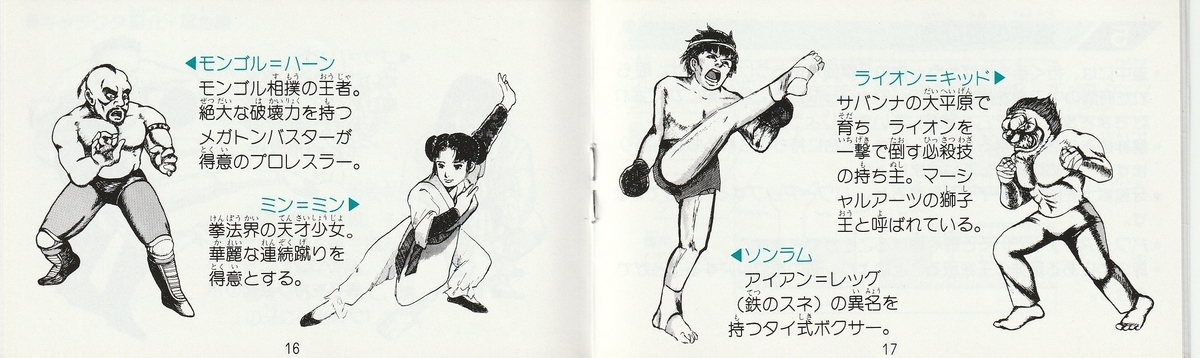 ◀モンゴル＝ハーン
モンゴル相撲の王者。
絶大な破壊力を持つ
メガトンバスターが
得意のプロレスラー。
ミン＝ミン▶
拳法界の天才少女。
華麗な連続蹴りを
得意とする。
16
ライオン＝キッド▶
サバンナの大平原で
育ち　ライオンを
一撃で倒す必殺技
の持ち主。マーシ
ャルアーツの獅子
王と呼ばれている。
◀ソンラム
アイアン＝レッグ
（鉄のスネ）の異名を
持つタイ式ボクサー。
17